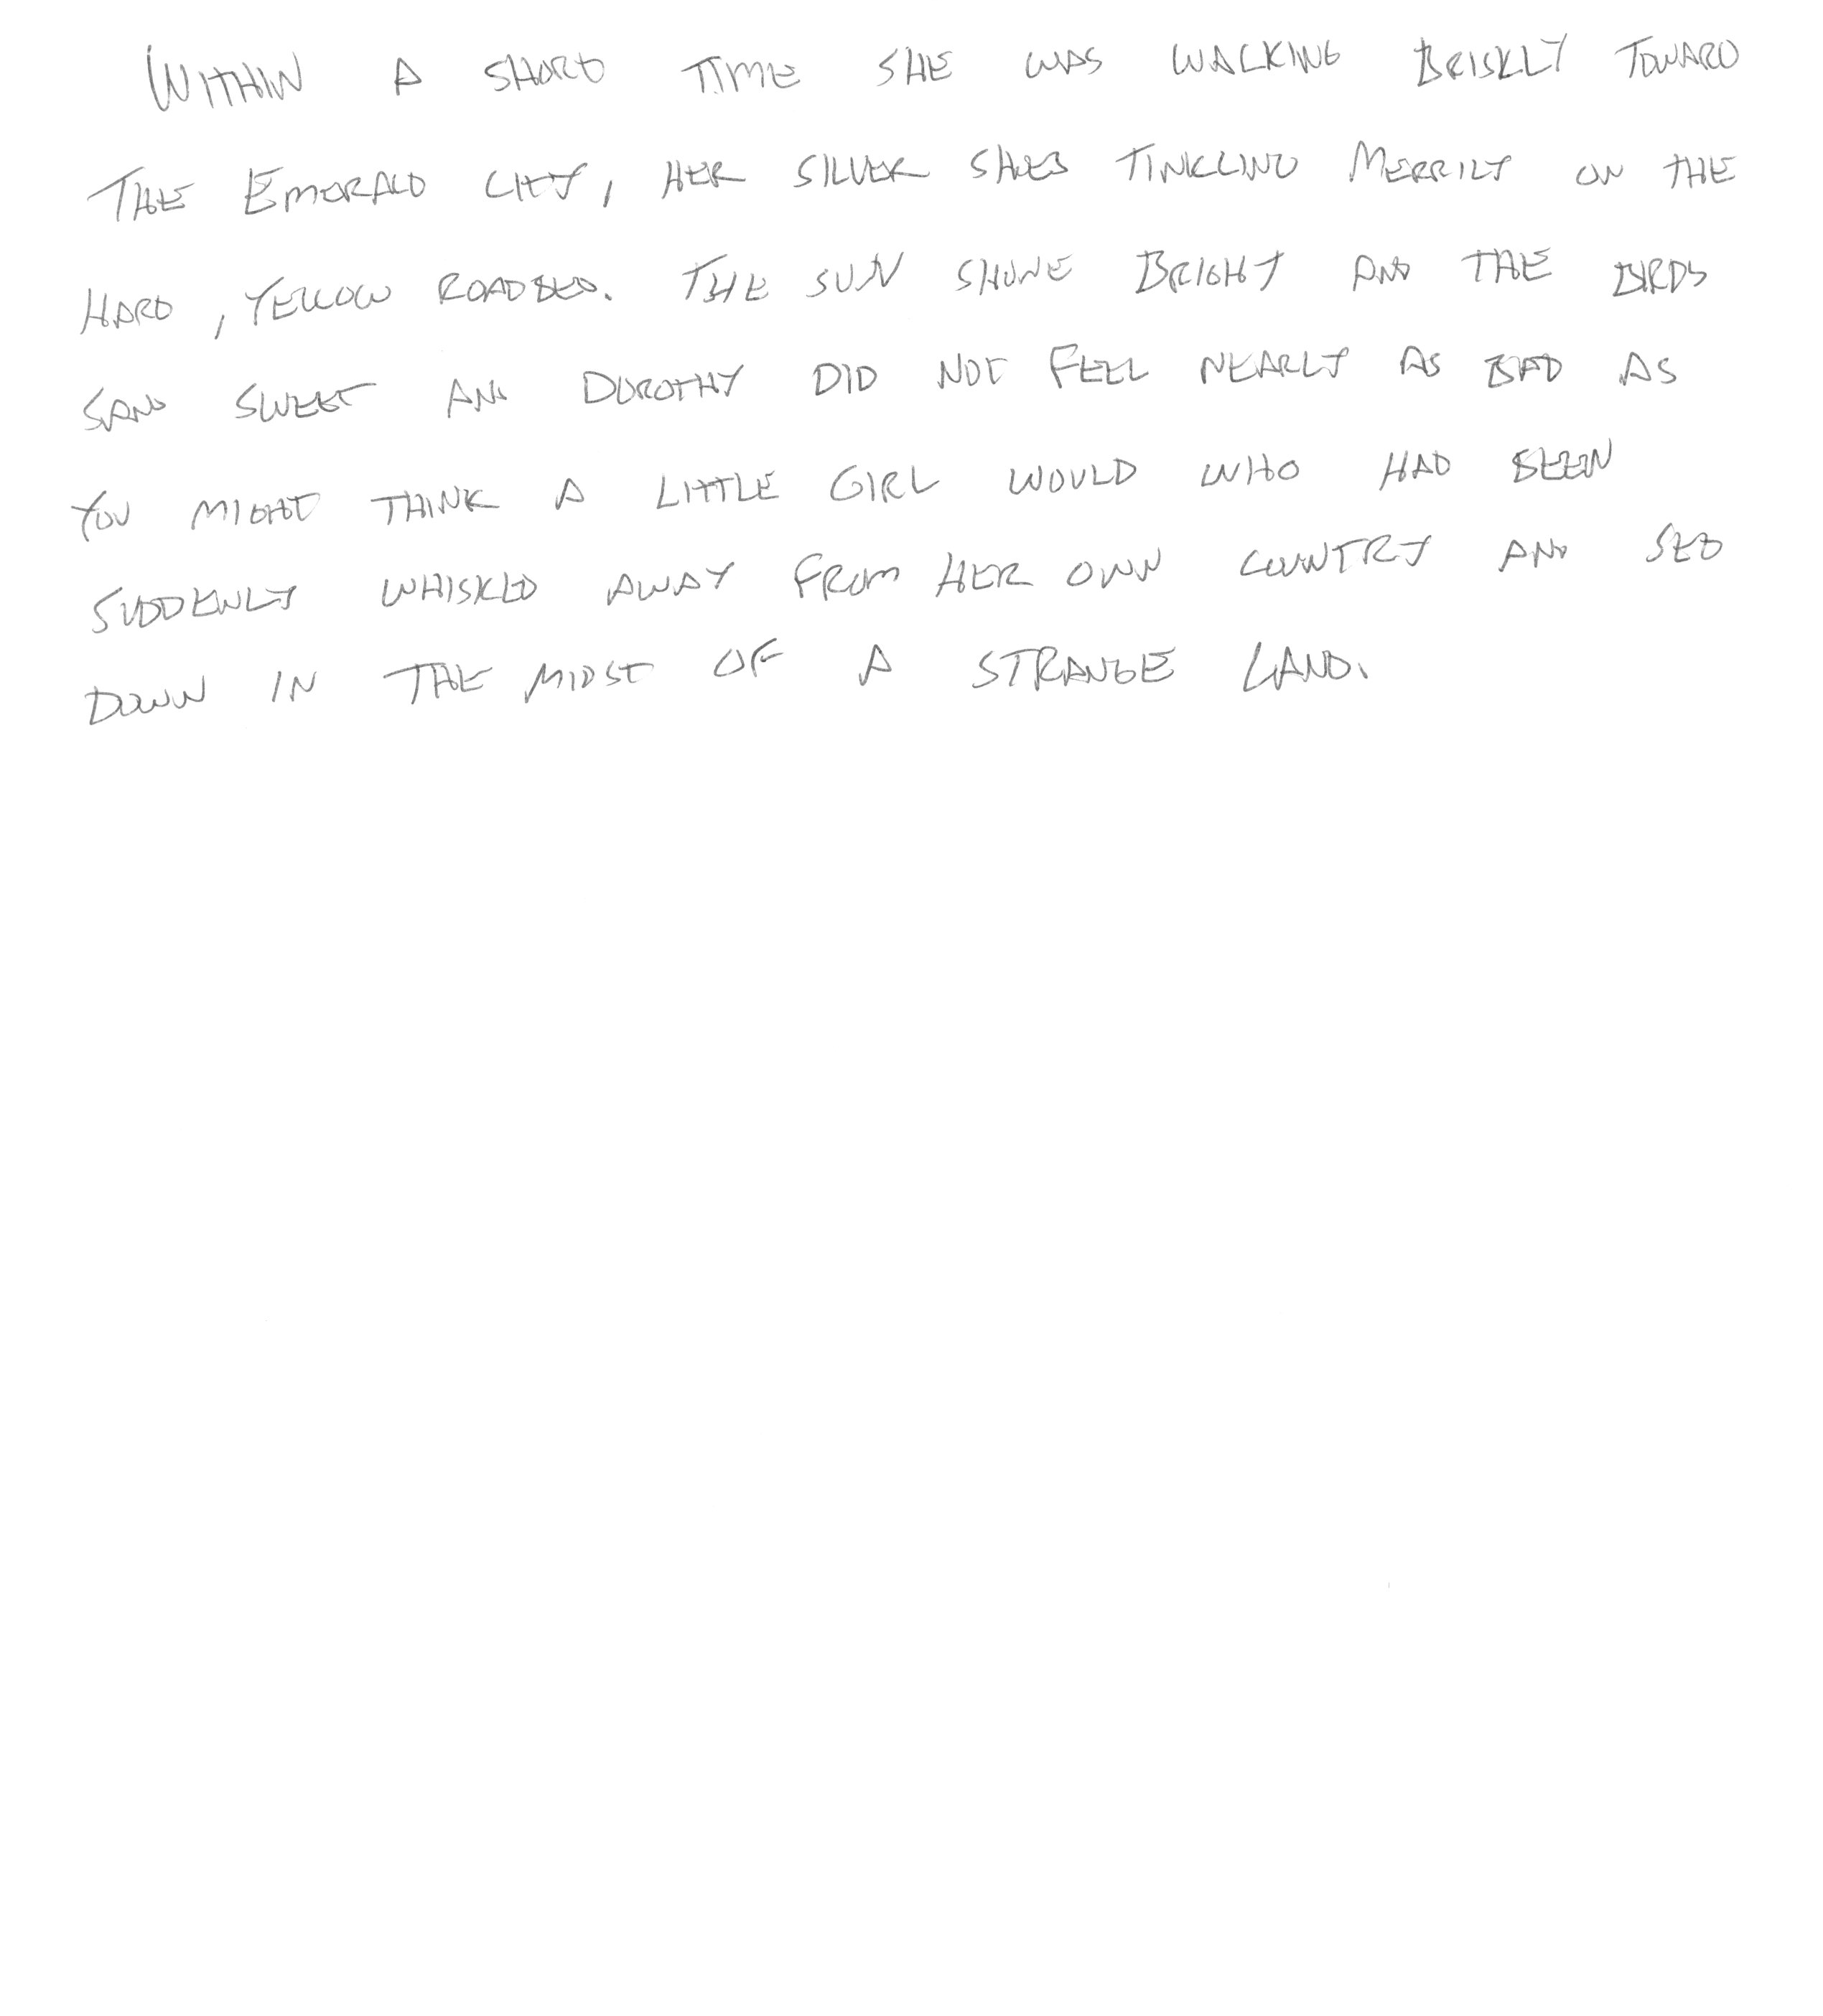 WITHIN A SHORT TIME SHE WAS WALKING BRISKLY TOWARD
THE EMERALD CITY, HER SILVER SHOES TINKLING MERRILY ON THE
HARD, YELLOW ROADBED. THE SUN SHONE BRIGHT AND THE BIRDS
SANG SWEET AND DOROTHY DID NOT FEEL NEARLY AS BAD AS
YOU MIGHT THINK A LITTLE GIRL WOULD WHO HAD BEEN
SUDDENLY WHISKED AWAY FROM HER OWN COUNTRY AND SET
DOWN IN THE MIDST OF A STRANGE LAND.